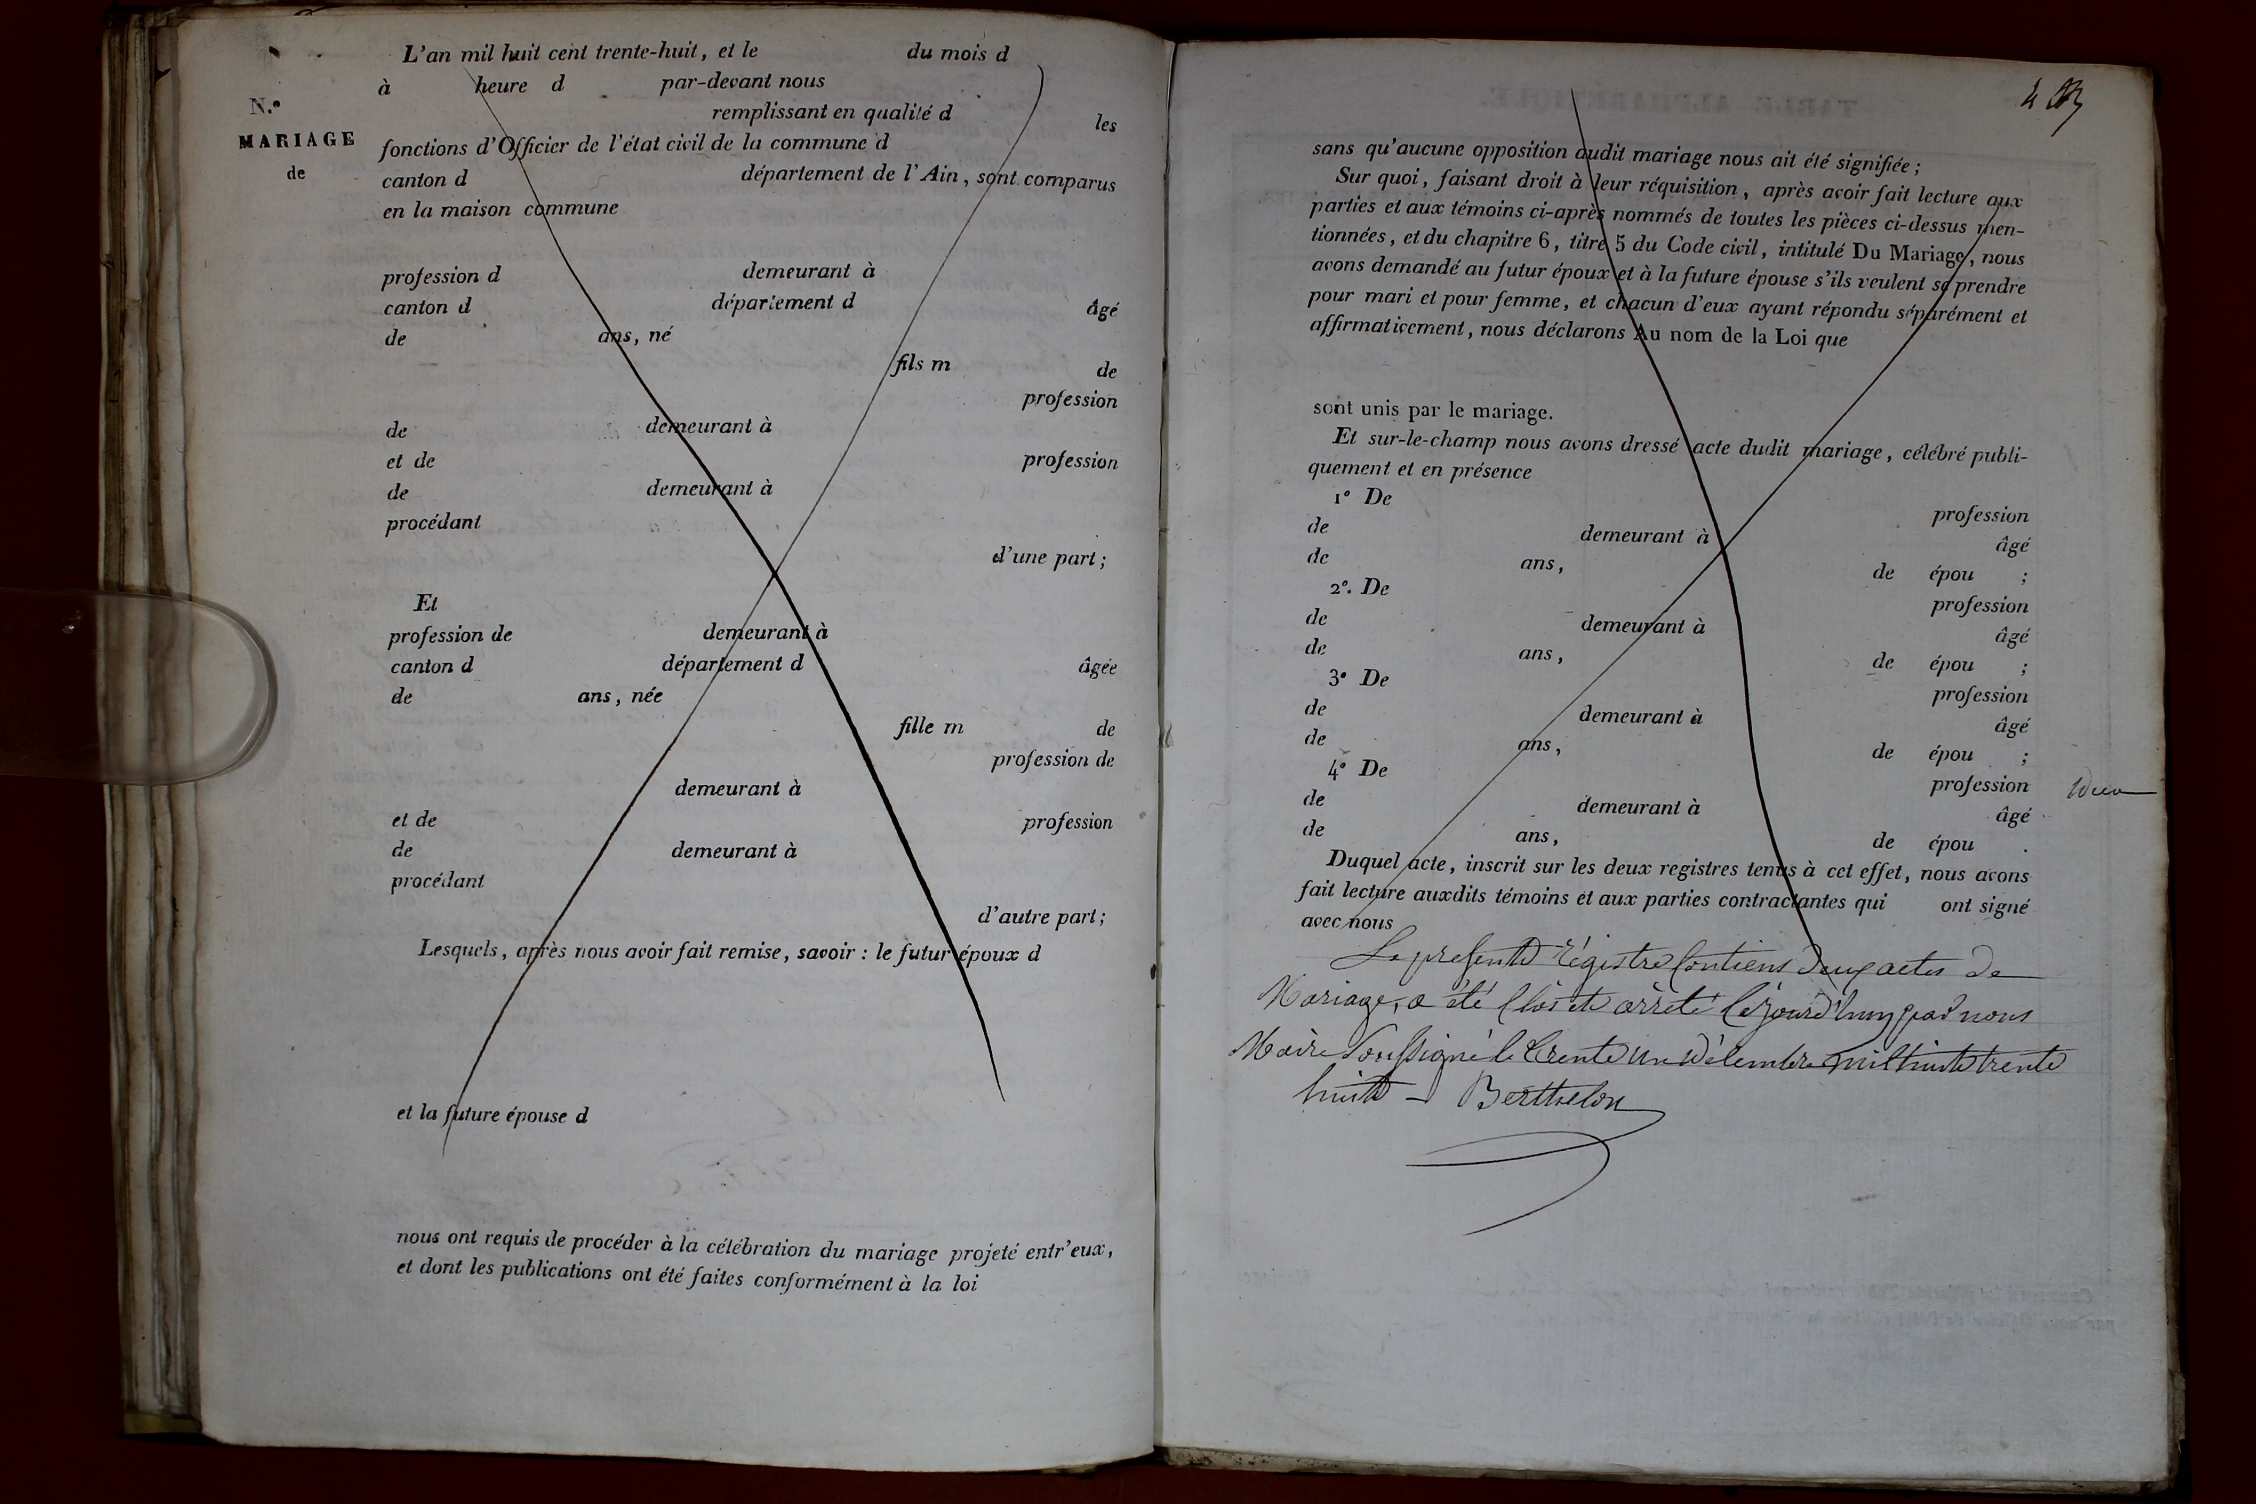 L'an mil huit cent trente-huit, et le du mois d
à heure d par-devant nous
remplissant en qualité d les
fonctions d'Officier de l'état civil de la commune d
canton d département de l'Ain, sont comparus
en la maison commune
N.º
MARIAGE
de
profession d demeurant à
canton d département d âgé
de ans, né
fils m de
profession
de demeurant à
et de profession
de demeurant à
procédant
d'une part;
Et
profession de demeurant à
canton d département d âgée
de ans, née
fille m de
profession de
demeurant à
et de profession
de demeurant à
procédant
d'autre part;
Lesquels, après nous avoir fait remise, savoir : le futur époux d
et la future épouse d
nous ont requis de procéder à la célébration du mariage projeté entr'eux,
et dont les publications ont été faites conformément à la loi
4
sans qu'aucune opposition audit mariage nous ait été signifiée;
Sur quoi, faisant droit à leur réquisition, après avoir fait lecture aux
parties et aux témoins ci-après nommés de toutes les pièces ci-dessus men-
tionnées, et du chapitre 6, titre 5 du Code civil, intitulé Du Mariage, nous
avons demandé au futur époux et à la future épouse s'ils veulent se prendre
pour mari et pour femme, et chacun d'eux ayant répondu séparément et
affirmativement, nous déclarons Au nom de la Loi que
sont unis par le mariage.
Et sur-le-champ nous avons dressé acte dudit mariage, célébré publi-
quement et en présence
1º De profession
de demeurant à âgé
de ans, de épou ;
2º. De profession
de demeurant à âgé
de ans, de épou ;
3º De profession
de demeurant à âgé
de ans, de épou ;
4º De profession
de demeurant à âgé
de ans, de épou .
Duquel acte, inscrit sur les deux registres tenus à cet effet, nous avons
fait lecture auxdits témoins et aux parties contractantes qui ont signé
avec nous
Le present régistre Contiens deux actes de
Mariage, a été Clos et arrêté Cejourd'huy par nous
Maire Soussigné le trente un décembre mil huit trente
huit - Berthelon